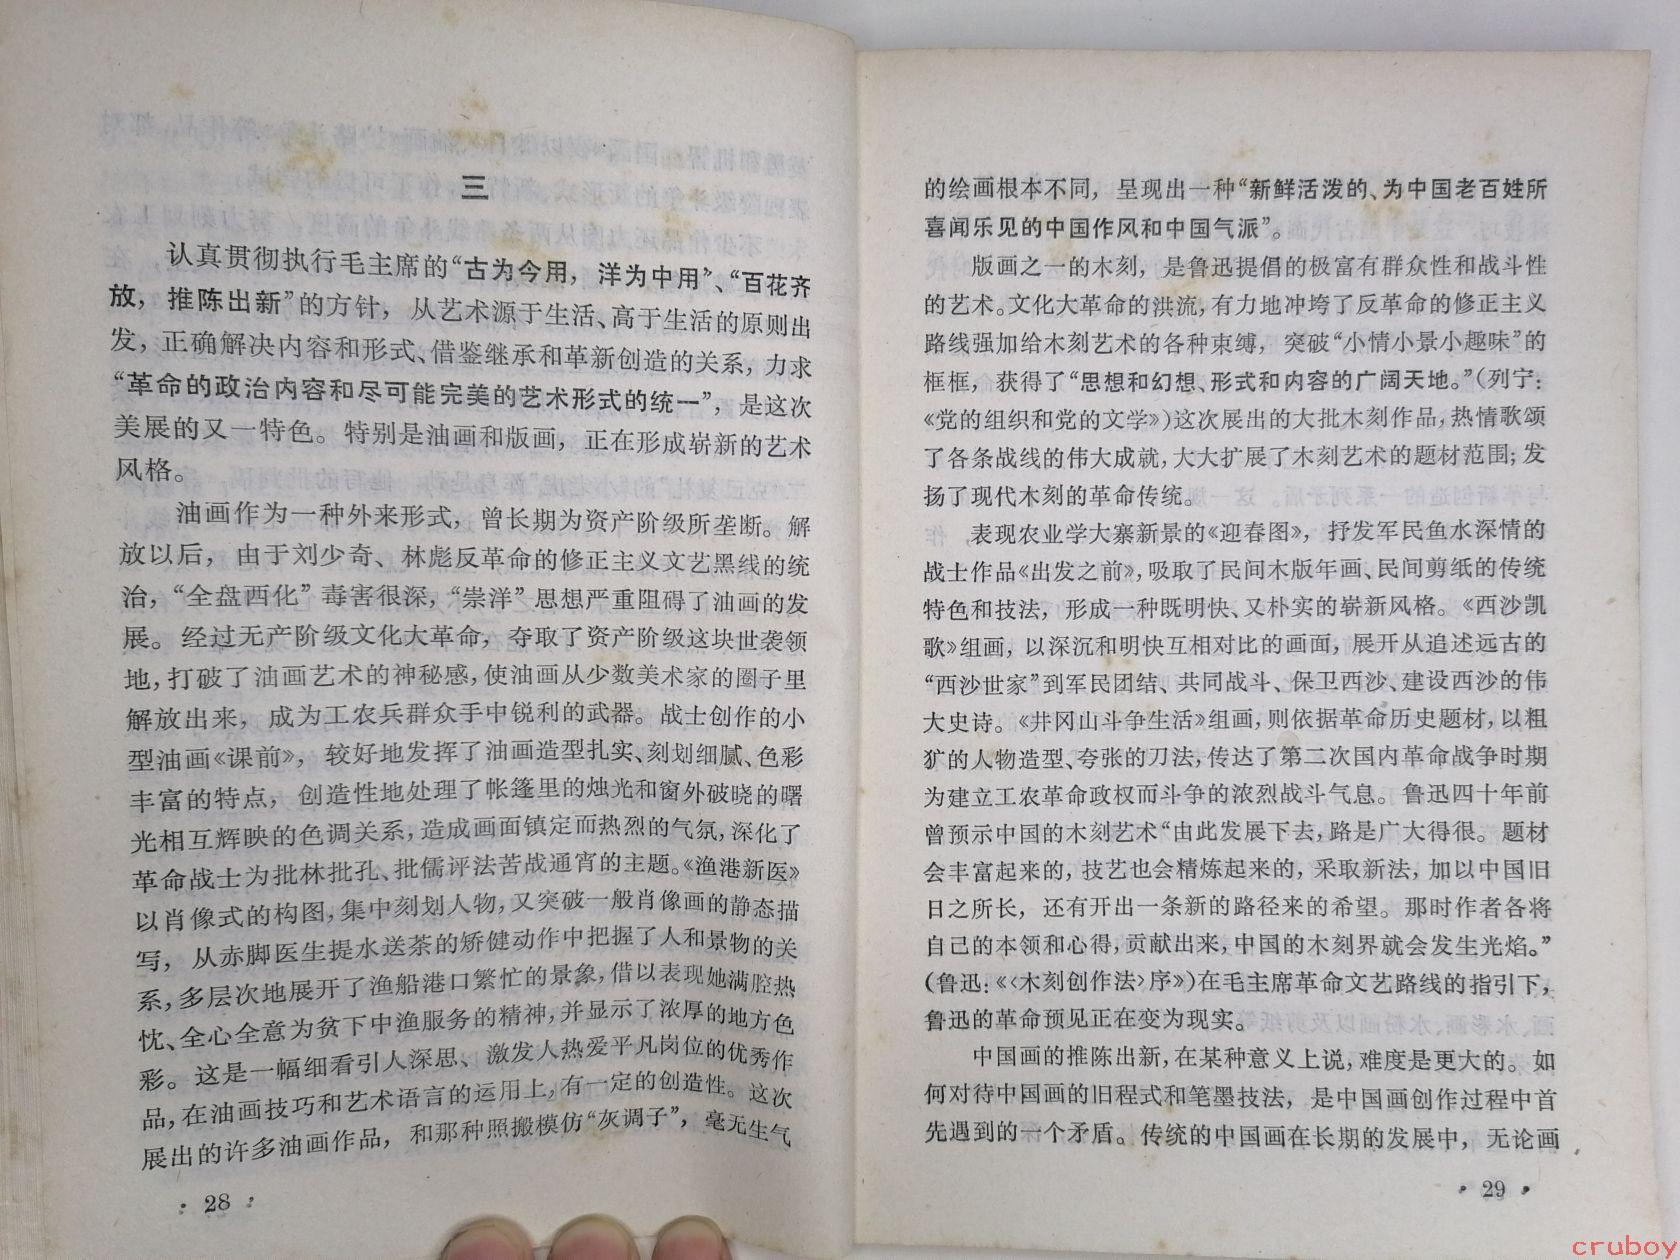 三
认真贯彻执行毛主席的“古为今用，洋为中用”、“百花齐
放，推陈出新”的方针，从艺术源于生活、高于生活的原则出
发，正确解决内容和形式、借鉴继承和革新创造的关系，力求
“革命的政治内容和尽可能完美的艺术形式的统一”，是这次
美展的又一特色。特别是油画和版画，正在形成崭新的艺术
风格。
油画作为一种外来形式，曾长期为资产阶级所垄断。解
放以后，由于刘少奇、林彪反革命的修正主义文艺黑线的统
治，“全盘西化”毒害很深，“崇洋”思想严重阻碍了油画的发
展。经过无产阶级文化大革命，夺取了资产阶级这块世袭领
地，打破了油画艺术的神秘感，使油画从少数美术家的圈子里
解放出来，成为工农兵群众手中锐利的武器。战士创作的小
型油画《课前》，较好地发挥了油画造型扎实、刻划细腻、色彩
丰富的特点，创造性地处理了帐篷里的烛光和窗外破晓的曙
光相互辉映的色调关系，造成画面镇定而热烈的气氛，深化了
革命战士为批林批孔、批儒评法苦战通宵的主题。《渔港新医》
以肖像式的构图，集中刻划人物，又突破一般肖像画的静态描
写，从赤脚医生提水送茶的矫健动作中把握了人和景物的关
系，多层次地展开了渔船港口繁忙的景象，借以表现她满腔热
忱、全心全意为贫下中渔服务的精神，并显示了浓厚的地方色
彩。这是一幅细看引人深思、激发人热爱平凡岗位的优秀作
品，在油画技巧和艺术语言的运用上，有一定的创造性。这次
展出的许多油画作品，和那种照搬模仿“灰调子”，毫无生气
· 28 ·
的绘画根本不同，呈现出一种“新鲜活泼的、为中国老百姓所
喜闻乐见的中国作风和中国气派”。
版画之一的木刻，是鲁迅提倡的极富有群众性和战斗性
的艺术。文化大革命的洪流，有力地冲垮了反革命的修正主义
路线强加给木刻艺术的各种束缚，突破“小情小景小趣味”的
框框，获得了“思想和幻想、形式和内容的广阔天地。”(列宁：
《党的组织和党的文学》)这次展出的大批木刻作品，热情歌颂
了各条战线的伟大成就，大大扩展了木刻艺术的题材范围；发
扬了现代木刻的革命传统。
表现农业学大寨新景的《迎春图》，抒发军民鱼水深情的
战士作品《出发之前》，吸取了民间木版年画、民间剪纸的传统
特色和技法，形成一种既明快、又朴实的崭新风格。《西沙凯
歌》组画，以深沉和明快互相对比的画面，展开从追述远古的
“西沙世家”到军民团结、共同战斗、保卫西沙、建设西沙的伟
大史诗。《井冈山斗争生活》组画，则依据革命历史题材，以粗
犷的人物造型、夸张的刀法，传达了第二次国内革命战争时期
为建立工农革命政权而斗争的浓烈战斗气息。鲁迅四十年前
曾预示中国的木刻艺术“由此发展下去，路是广大得很。题材
会丰富起来的，技艺也会精炼起来的，采取新法，加以中国旧
日之所长，还有开出一条新的路径来的希望。那时作者各将
自己的本领和心得，贡献出来，中国的木刻界就会发生光焰。”
(鲁迅：《〈木刻创作法〉序》)在毛主席革命文艺路线的指引下，
鲁迅的革命预见正在变为现实。
中国画的推陈出新，在某种意义上说，难度是更大的。如
何对待中国画的旧程式和笔墨技法，是中国画创作过程中首
先遇到的一个矛盾。传统的中国画在长期的发展中，无论画
· 29 ·
cruboy